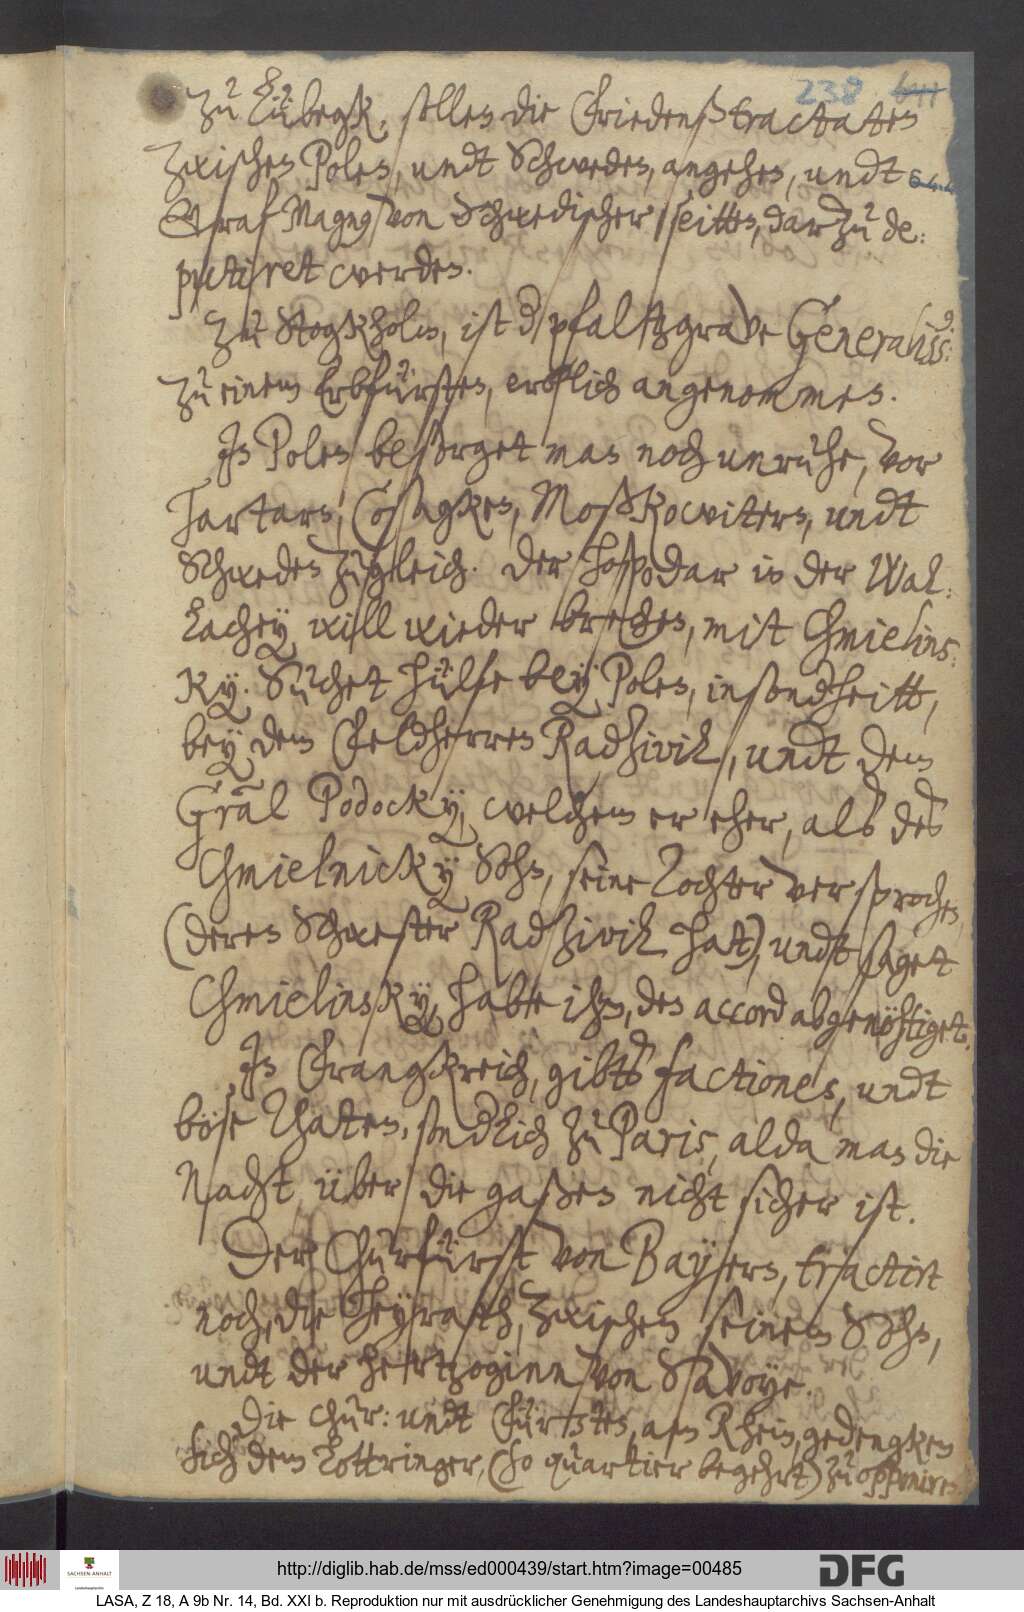 238 644
Zu Lübegk, sollen die Friedenßtractaten
zwischen Polen, undt Schweden, angehen, undt
Graf Magnus von Schwedischer seitten, darzu de:
putiret werden.
Zu Stogkholm, ist d. pfaltzgrave Generaliss:
zu einem Erbfürsten, erblich angenommen.
In Polen besorget man noch unruhe, vor
Tartarn, Cosagken, Moßkowitern, undt
Schweden zugleich. Der hospodar in der Wal:
lachey will wieder brechen, mit Chmielins:
ky. Suchet hülfe bey Polen, insonderheitt,
bey dem Feldherren Radzivil, undt dem
Gräl Podocky, welchem er eher, alß deß
Chmielnicky Sohn, seine Tochter versprochen,
(deren Schwester Radzivil hatt) undt saget
Chmielinsky, habe ihm, den accord abgenöhtiget.
In Frangkreich, gibtß factiones, undt
böse Thaten, sondlich zu Paris, alda man die
Nacht über die gaßen nicht sicher ist.
Der Churfürst von Bayern, tractirt
noch, die heyrath, zwischen seinem Sohn,
undt der hertzoginn von Savoye.
Die Chur: undt Fürsten, am Rhein, gedengken
sich dem Lottringer, (so quartier begehrt) zu opponiren.
http://diglib.hab.de/mss/ed000439/start.htm?image=00485
SACHSEN-ANHALT
Landeshauptarchiv
DFG
LASA, Z 18, A 9b Nr. 14, Bd. XXI b. Reproduktion nur mit ausdrücklicher Genehmigung des Landeshauptarchivs Sachsen-Anhalt